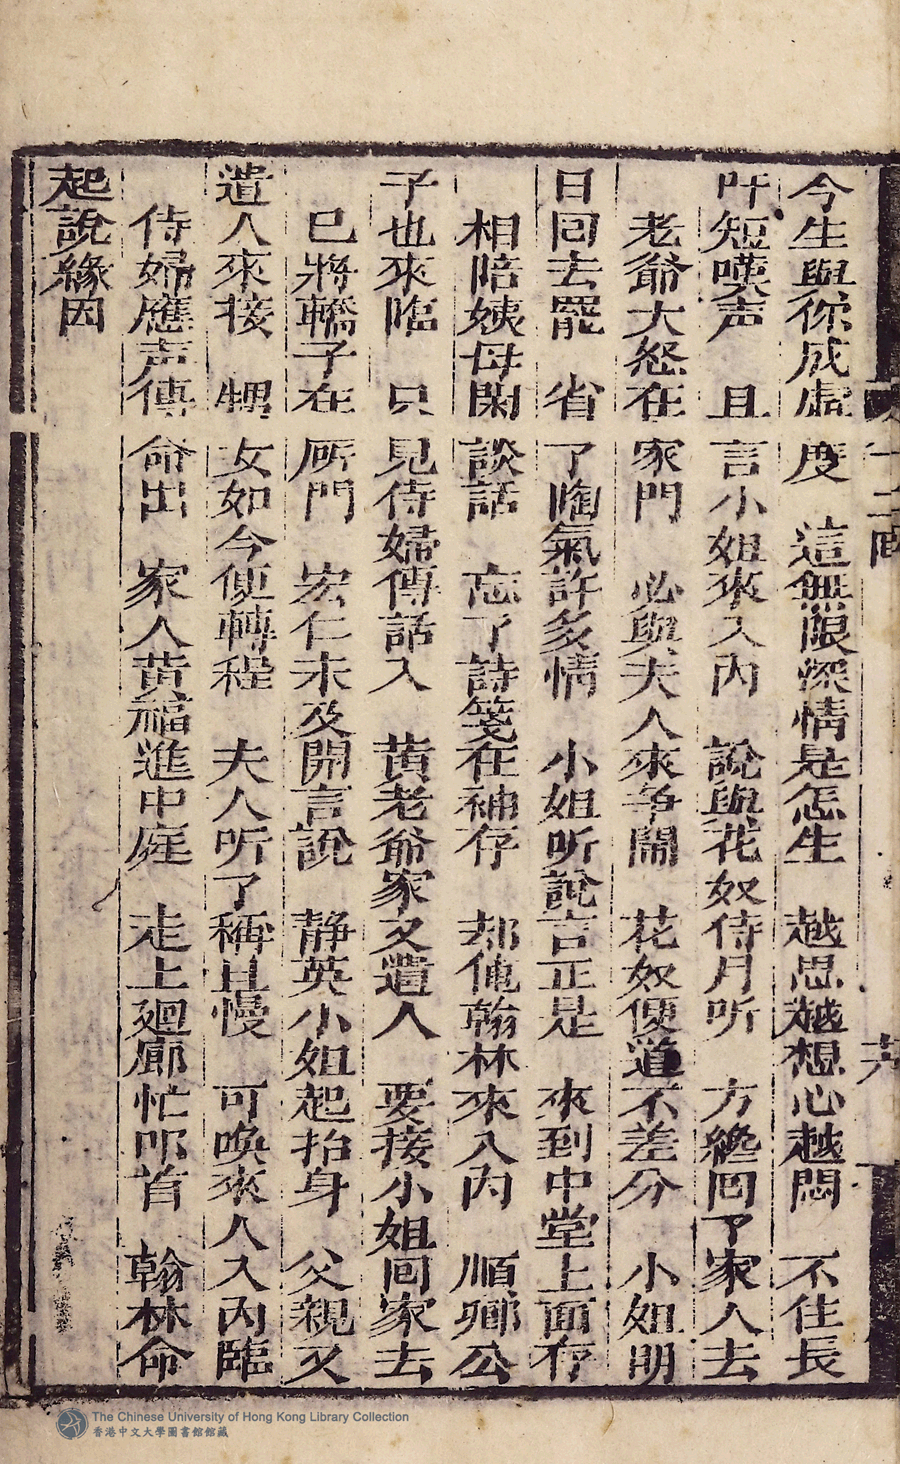 今生與你成虛度　這無限深情是怎生　越思越想心越悶　不住長
吁短嘆声　且言小姐來入內　說與花奴侍月听　方纔囬了家人去
老爺大怒在家門　必與夫人來争鬧　花奴便道不差分　小姐明
日回去罷　省了陶氣許多情　小姐听說言正是　來到中堂上面存
相陪姨母閑談話　忘了詩箋在袖存　却俺翰林來入內　順鄉公
子也來臨　只見侍婦傳話入　黄老爺家又遣人　要接小姐囬家去
已將轎子在㕔門　宏仁未及開言說　靜英小姐起抬身　父親又
遣人來接　甥女如今便轉程　夫人听了稱且慢　可喚來人入內臨
侍婦應声傳命出　家人黄福進中庭　走上廻廊忙叩首　翰林命
起說緣因
十二囬
The Chinese University of Hong Kong Library Collection
香港中文大學圖書館館藏